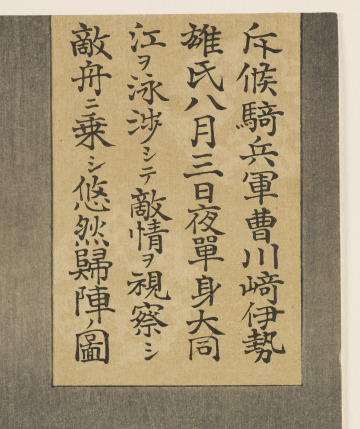 斥候騎兵軍曹川﨑伊勢
雄氏八月三日夜單身大同
江ヲ泳渉シテ敵情ヲ視察シ
敵舟ニ乗シ悠然歸陣ノ圖